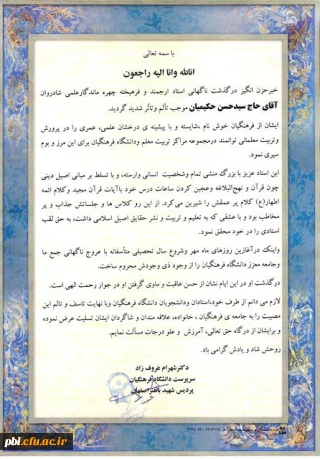 با سمه تعالی
اناللّه وانا الیه راجعون
خبرحزن انگیز درگذشت ناگهانی استاد ارجمند و فرهیخته چهره ماندگارعلمی شادروان
آقای حاج سیدحسن حکیمیان موجب تألم وتأثر شدید گردید.
ایشان از فرهنگیان خوش نام ،شایسته و با پیشینه ی درخشان علمی، عمری را در پرورش
وتربیت معلمانی توانمند درمجموعه مراکز تربیت معلم ودانشگاه فرهنگیان برای این مرز و بوم
سپری نمود.
این استاد عزیز با بزرگ منشی تمام وشخصیت انسانی وارسته، و با تسلط بر مبانی اصیل دینی
چون قرآن و نهج‌البلاغه وعجین کردن ساعات درس خود باآیات قرآن مجید وکلام ائمه
اطهار(ع) کلام پر عمقش را شیرین می‌کرد. از این رو کلاس ها و جلساتش جذاب و پر
مخاطب بود و با عشقی که به تعلیم و تربیت و نشر حقایق اصیل اسلامی داشت، به حق لقب
استادی را در خود محقق نمود.
واینک درآغازین روزهای ماه مهر وشروع سال تحصیلی متأسفانه با عروج ناگهانی جمع ما
وجامعه معزز دانشگاه فرهنگیان را از وجود ذی وجودش محروم ساخت.
درگذشت او در این ایام نشان از حسن عاقبت و ماوی گرفتن او در جوار رحمت الهی است.
لازم می دانم از طرف خود،استادان ودانشجویان دانشگاه فرهنگیان وبا نهایت تاسف و تالم این
مصیبت را به جامعه ی فرهنگیان ، خانواده، علاقه مندان و شاگردان ایشان تسلیت عرض نموده
و برایشان از درگاه حق تعالی، آمرزش و علو درجات مسألت نمایم.
روحش شاد و یادش گرامی باد.
دکترشهرام عروف زاد
سرپرست دانشگاه فرهنگیان
پردیس شهید باهنر اصفهان
pbi.cfu.ac.ir